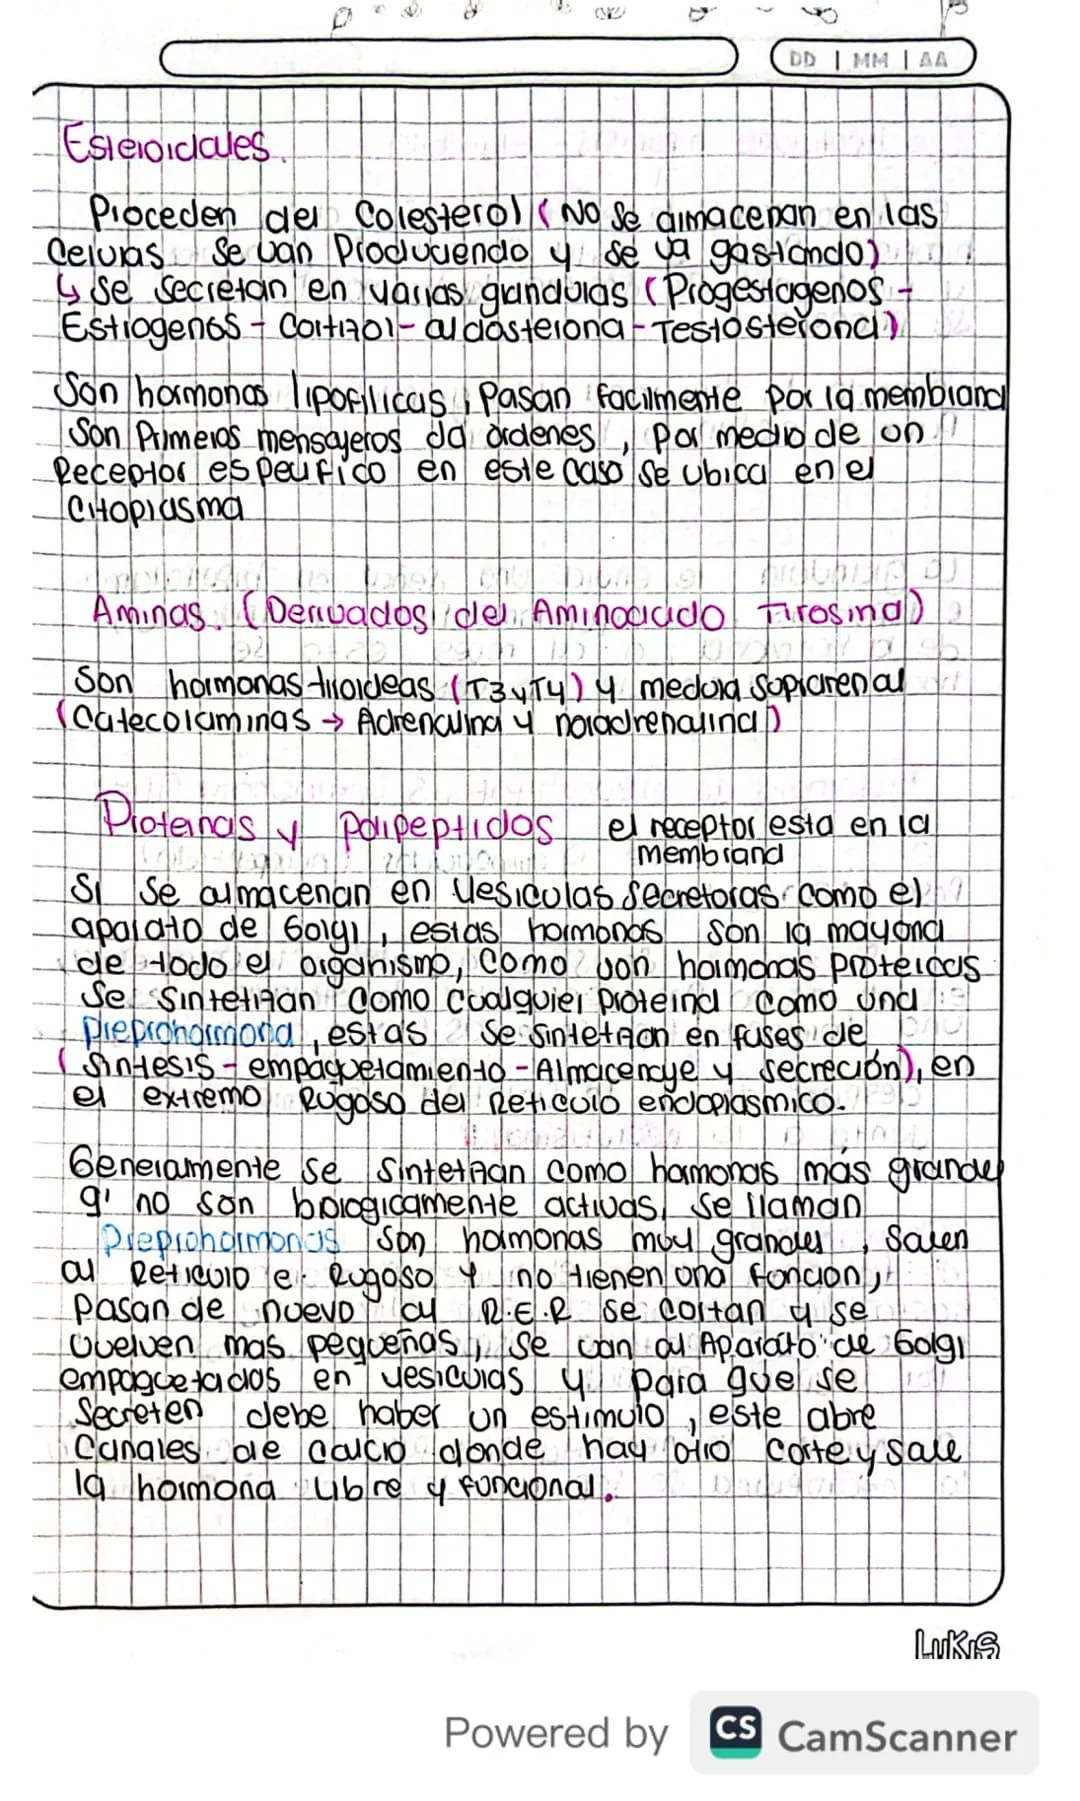 DD | MM | AA
Esteroidales.
Proceden del Colesterol (No Se almacenan en las
Celulas Se van Produciendo y se va gastando)
↳ Se Secretan en varias glandulas (Progestagenos -
Estrogenos - Cortizol - aldosterona - Testosterona)
Son hormonas lipofilicas, Pasan facilmente por la membrana
Son Primeros mensajeros da ordenes, por medio de un
Receptor especifico en este caso Se ubica en el
Citoplasma
Aminas. (Derivados del Aminoacido Tirosina)
Son hormonas tiroideas (T3 y T4) y medula Suprarrenal
(Catecolaminas → Adrenalina y noradrenalina)
Proteinas y polipeptidos el receptor esta en la
membrana
Si Se almacenan en Vesiculas Secretoras como el
aparato de Golgi, estas hormonas Son la mayoria
de todo el organismo, Como son hormonas proteicas
Se Sintetizan Como Cualquier proteina Como una
preprohormona, estas Se Sintetizan en fases de
(Sintesis - empaquetamiento - Almacenaje y Secreción), en
el extremo Rugoso del Reticulo endoplasmico.
Generalmente Se Sintetizan Como hormonas más grandes
q' no son biologicamente activas, Se llaman
Preprohormonas Son hormonas muy grandes, Salen
al Reticulo e. Rugoso y no tienen una funcion,
Pasan de nuevo al R.E.R Se cortan y se
Vuelven mas pequeñas, Se van al Aparato de Golgi
empaquetadas en vesiculas y para que se
Secreten debe haber un estimulo, este abre
Canales de calcio donde hay otro Corte y sale
la hormona libre y funcional.
LUKAS
Powered by CS CamScanner